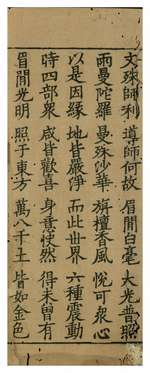 文殊師利　導師何故　眉間白毫　大光普照
雨曼陀羅　曼殊沙華　旃檀香風　悅可衆心
以是因緣　地皆嚴淨　而此世界　六種震動
時四部衆　咸皆歡喜　身意快然　得未曾有
眉間光明　照于東方　萬八千土　皆如金色